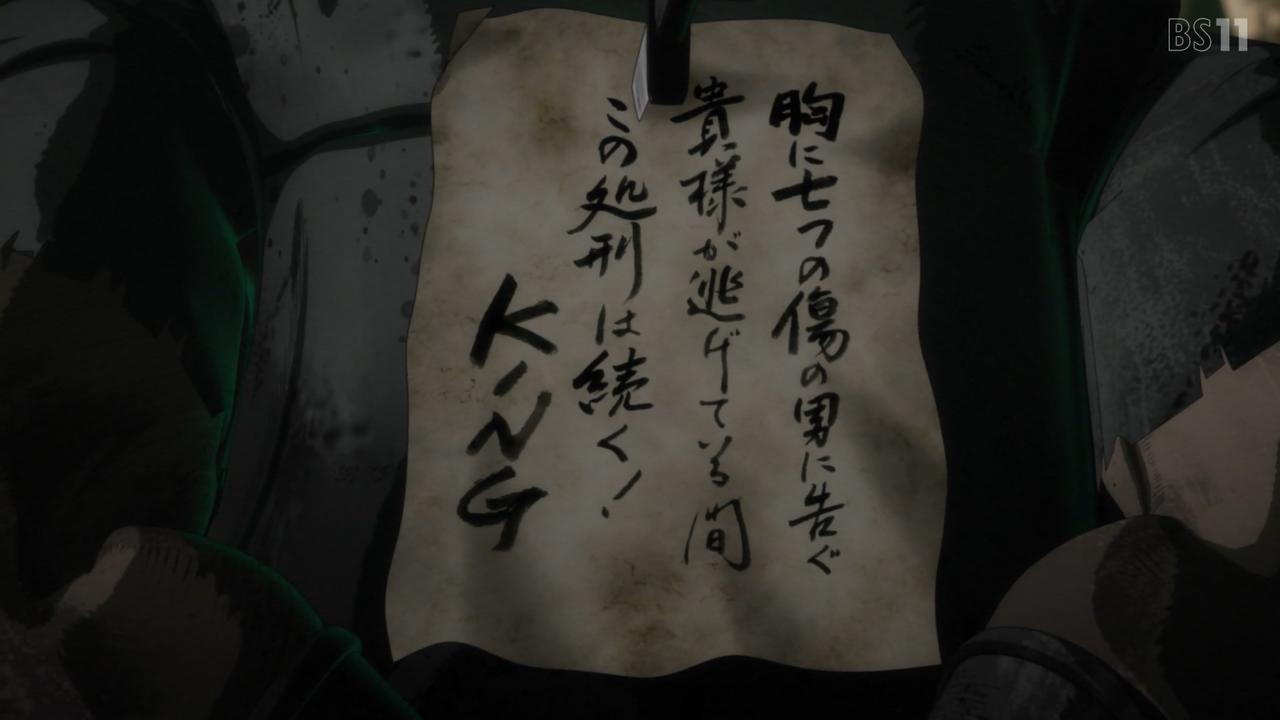 胸に七つの傷の男に告ぐ
貴様が逃げている間
この処刑は続く！
KING
BS11